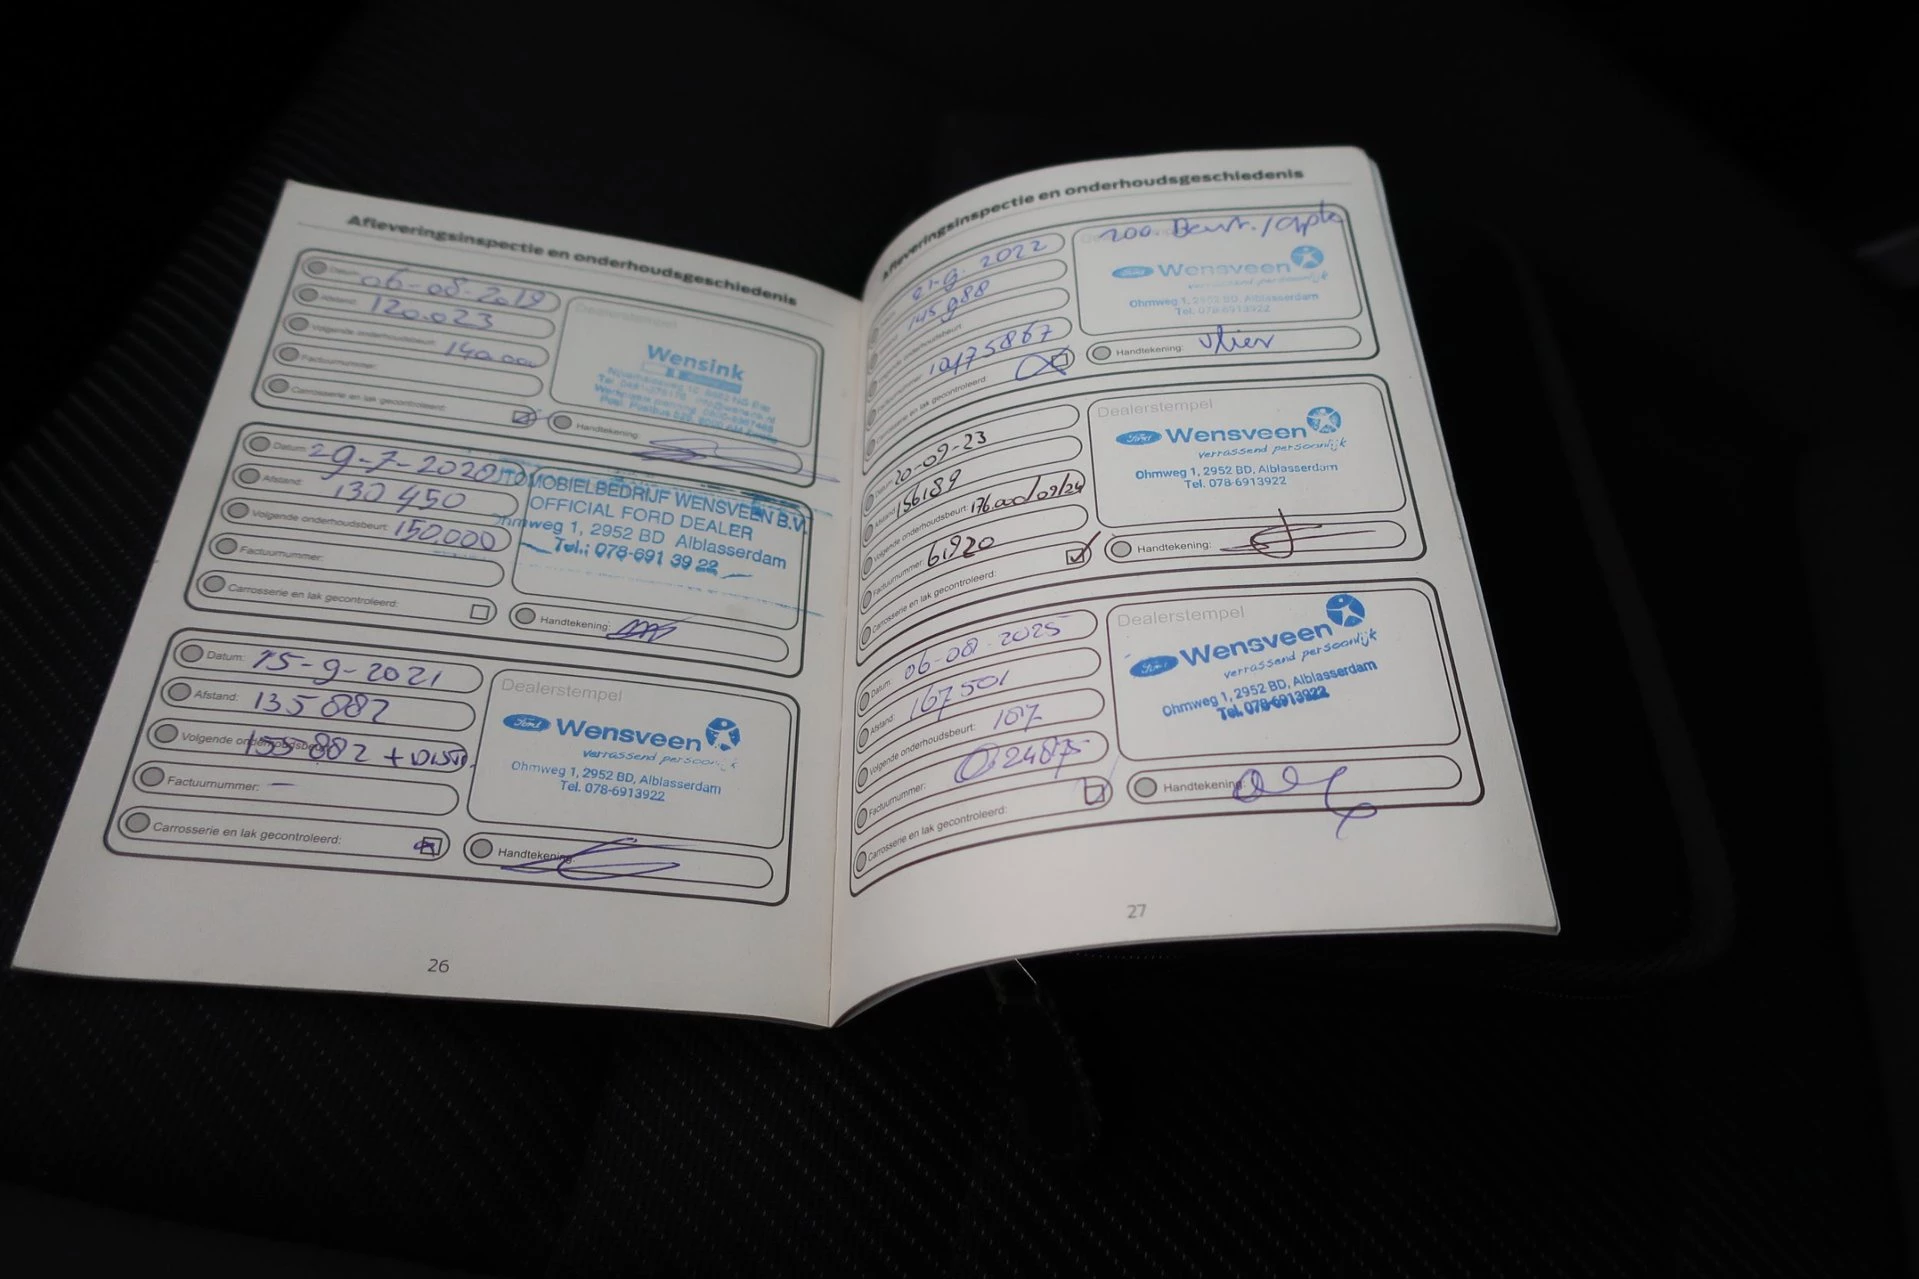 Afleveringsinspectie en onderhoudsgeschiedenis
Datum: 06-08-2019
Afstand: 120.023
Volgende onderhoudsbeurt: 140.000
Factuurnummer:
Carrosserie en lak gecontroleerd:
Dealerstempel
Wensink
Handtekening:
Datum: 29-7-2020
Afstand: 130 450
Volgende onderhoudsbeurt: 150.000
Factuurnummer:
Carrosserie en lak gecontroleerd:
AUTOMOBIELBEDRIJF WENSVEEN B.V.
OFFICIAL FORD DEALER
Ohmweg 1, 2952 BD Alblasserdam
Tel.: 078-691 39 22
Handtekening:
Datum: 15-9-2021
Afstand: 135882
Volgende onderhoudsbeurt: 155882 +
Factuurnummer: —
Carrosserie en lak gecontroleerd:
Dealerstempel
Ford Wensveen
verrassend persoonlijk
Ohmweg 1, 2952 BD, Alblasserdam
Tel. 078-6913922
Handtekening:
26
Afleveringsinspectie en onderhoudsgeschiedenis
2022
145988
Volgende onderhoudsbeurt:
Factuurnummer: 10475867
Carrosserie en lak gecontroleerd:
200. Beurt./
Ford Wensveen
verrassend persoonlijk
Ohmweg 1, 2952 BD, Alblasserdam
Tel. 078-6913922
Handtekening:
Datum: 20-09-23
Afstand: 156189
Volgende onderhoudsbeurt: 176.000/09/24
Factuurnummer: 61920
Carrosserie en lak gecontroleerd:
Dealerstempel
Ford Wensveen
verrassend persoonlijk
Ohmweg 1, 2952 BD, Alblasserdam
Tel. 078-6913922
Handtekening:
Datum: 06-08-2025
Afstand: 167501
Volgende onderhoudsbeurt:
Factuurnummer:
Carrosserie en lak gecontroleerd:
Dealerstempel
Ford Wensveen
verrassend persoonlijk
Ohmweg 1, 2952 BD, Alblasserdam
Tel. 078-6913922
Handtekening:
27